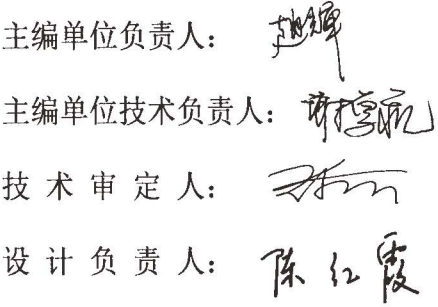 主编单位负责人:赵辉
主编单位技术负责人:
技术审定人:
设计负责人:陈红霞